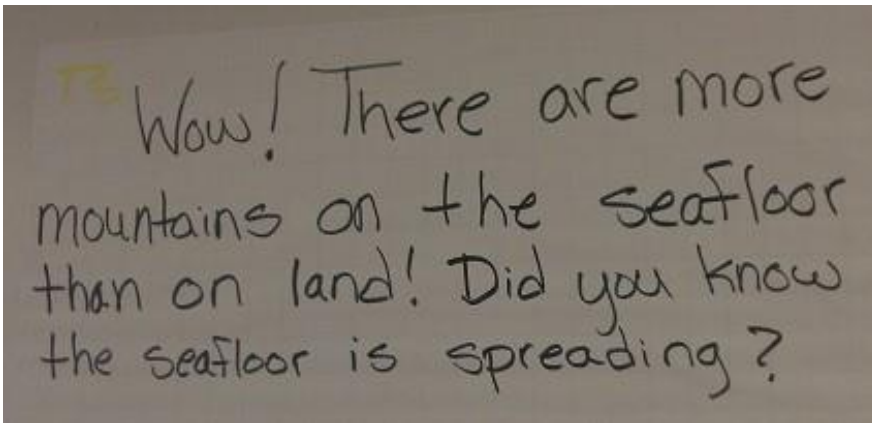 Wow! There are more
mountains on the seafloor
than on land! Did you know
the seafloor is spreading?